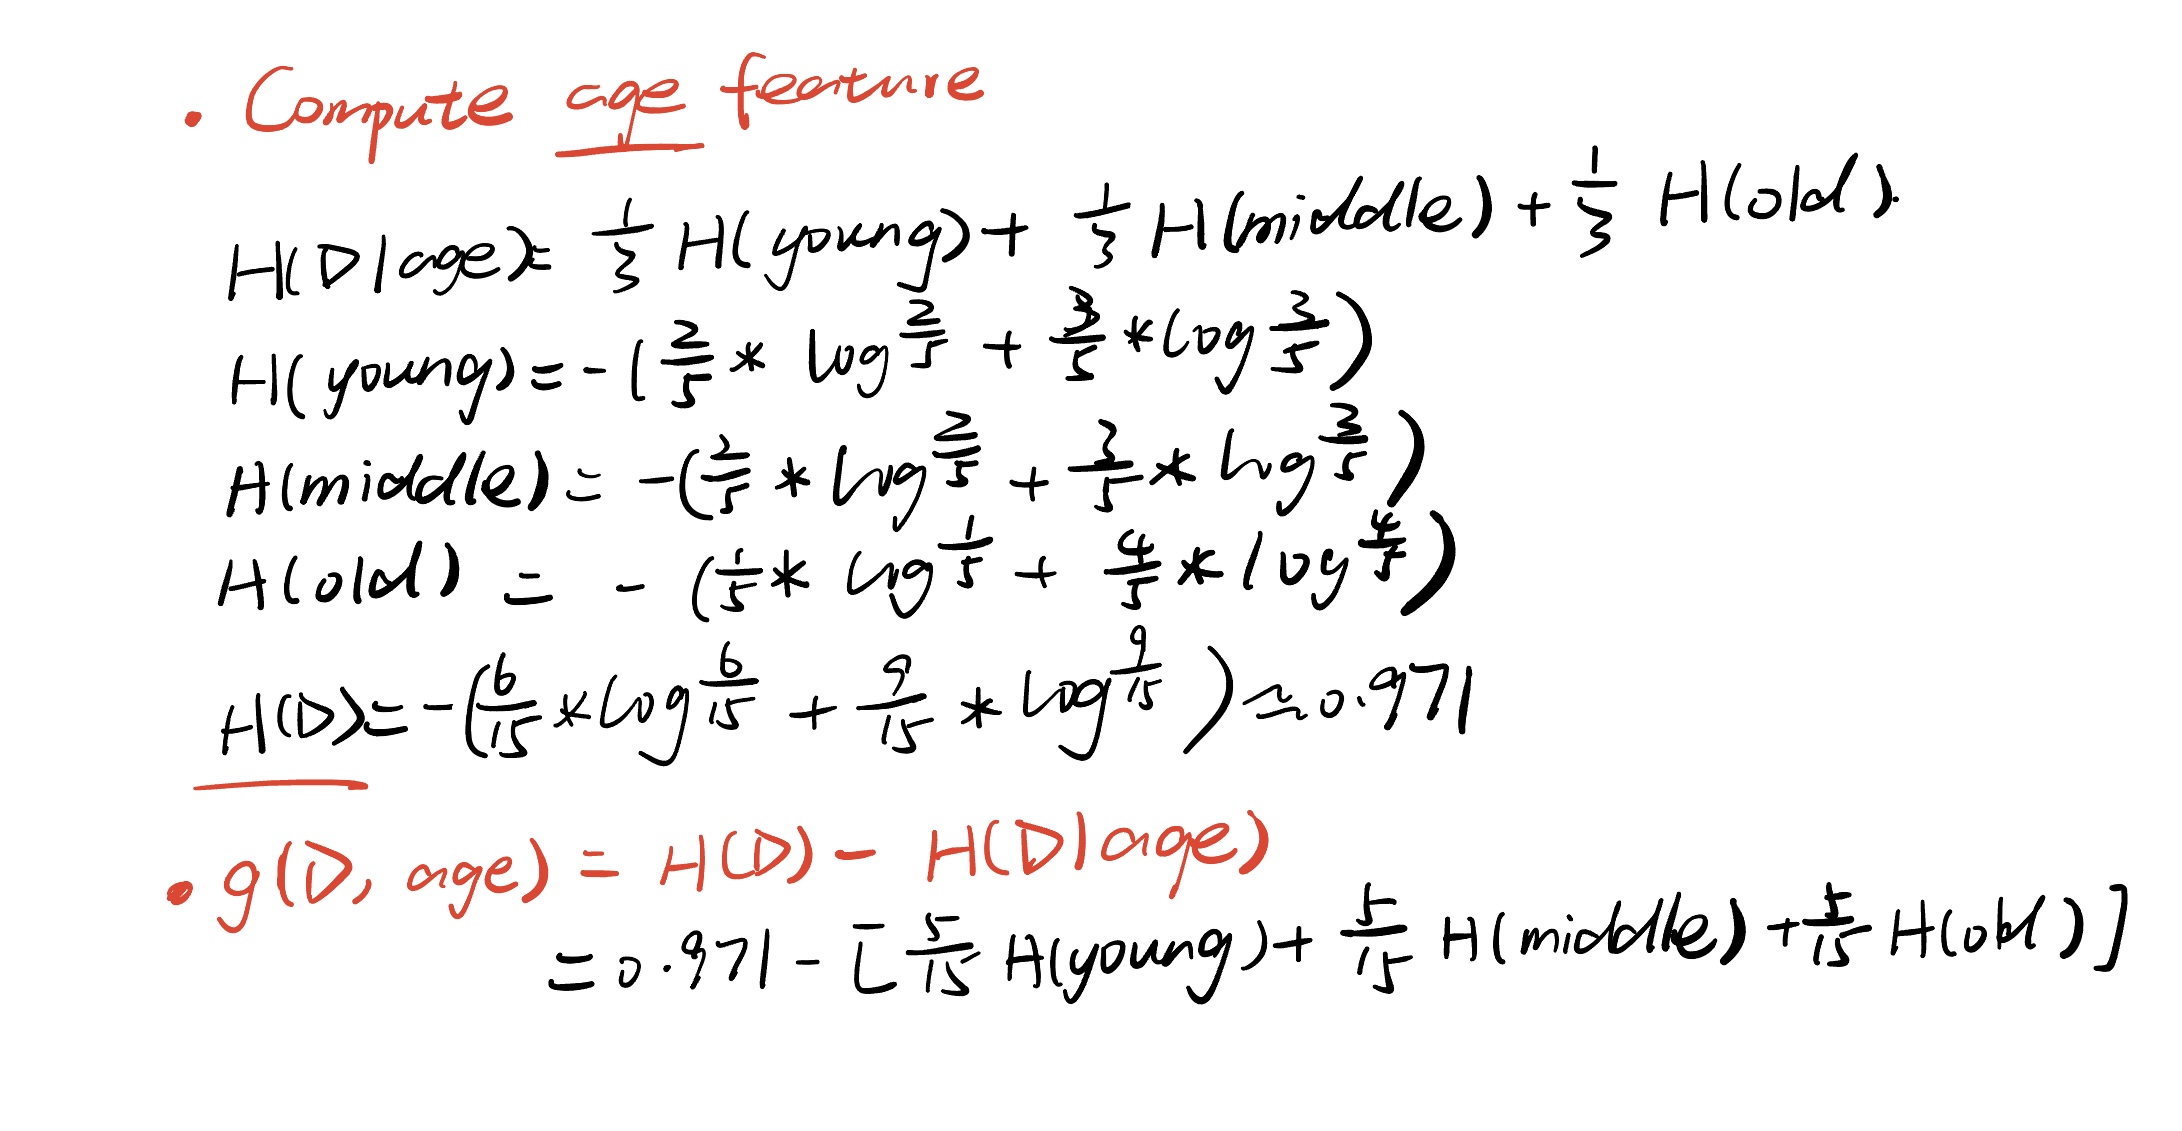 · Compute age feature
H(D|age)= 1/3 H(young) + 1/3 H(middle) + 1/3 H(old).
H(young) = -(2/5 * log 2/5 + 3/5 * log 3/5)
H(middle) = -(2/5 * log 2/5 + 3/5 * log 3/5)
H(old) = -(1/5 * log 1/5 + 4/5 * log 4/5)
H(D) = -(6/15 * log 6/15 + 9/15 * log 9/15) ≈ 0.971
· g(D, age) = H(D) - H(D|age)
= 0.971 - [5/15 H(young) + 5/15 H(middle) + 5/15 H(old)]